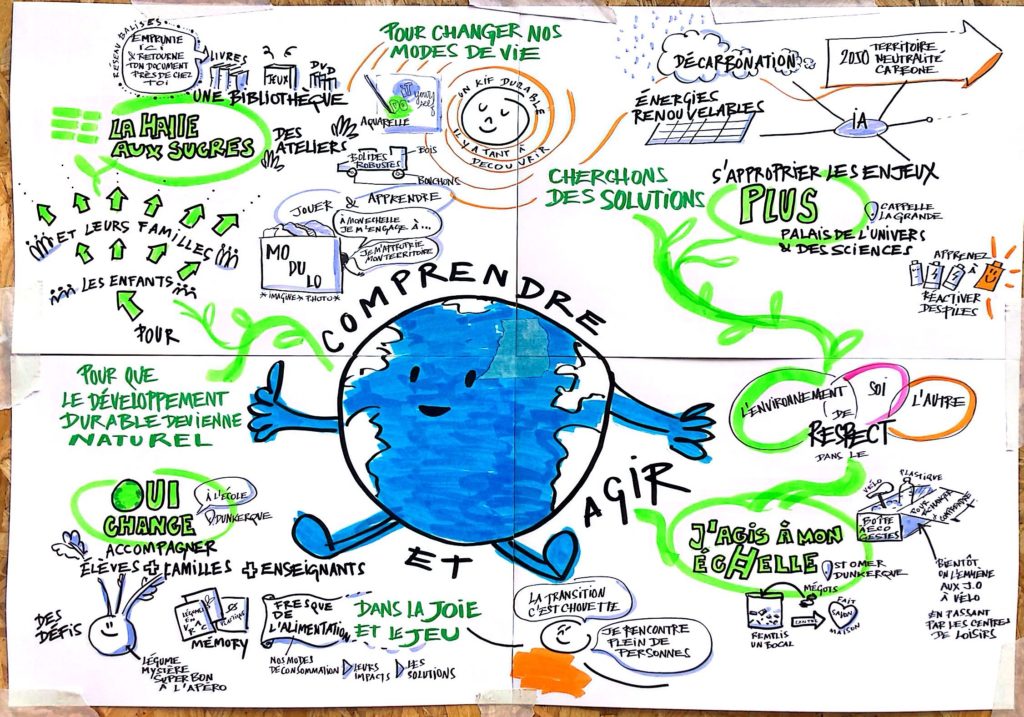 RÉSEAU BALISES
EMPRUNTE
ICI
& RETOURNE
TON DOCUMENT
PRÈS DE CHEZ
TOI
LIVRES
JEUX
DVD
UNE BIBLIOTHÈQUE
LA HALLE
AUX SUCRES
DES
ATELIERS
ET LEURS FAMILLES
LES ENFANTS
POUR
POUR CHANGER NOS
MODES DE VIE
AQUARELLE
BOLIDES
ROBUSTES
BOIS
BOUCHONS
UN KIF DURABLE
IL Y A TANT À
DÉCOUVRIR
JOUER & APPRENDRE
À MON ECHELLE
JE M'ENGAGE À...
JE M'APPROPRIE
MON TERRITOIRE
MO
DU
LO
IMAGINE PHOTO
DÉCARBONATION
2030
TERRITOIRE
NEUTRALITÉ
CARBONE
ÉNERGIES
RENOUVELABLES
IA
CHERCHONS
DES SOLUTIONS
S'APPROPRIER LES ENJEUX
PLUS
CAPPELLE
LA GRANDE
PALAIS DE L'UNIVERS
& DES SCIENCES
APPRENEZ
À
RÉACTIVER
DES PILES
COMPRENDRE
ET
AGIR
POUR QUE
LE DÉVELOPPEMENT
DURABLE DEVIENNE
NATUREL
OUI
CHANGE
À L'ÉCOLE
DUNKERQUE
ACCOMPAGNER
ÉLÈVES + FAMILLES + ENSEIGNANTS
DES
DÉFIS
LÉGUME
MYSTÈRE
SUPER BON
À L'APÉRO
MÉMORY
FRESQUE
DE
L'ALIMENTATION
NOS MODES
DE CONSOMMATION
LEURS
IMPACTS
LES
SOLUTIONS
DANS LA JOIE
ET LE JEU
LA TRANSITION
C'EST CHOUETTE
JE RENCONTRE
PLEIN DE
PERSONNES
L'ENVIRONNEMENT
SOI
L'AUTRE
DE
RESPECT
DANS LE
J'AGIS À MON
ÉCHELLE
ST OMER
DUNKERQUE
VÉLO
PLASTIQUE
BOITE
À ECO
GESTES
BIENTÔT
ON L'EMMÈNE
AUX J.O
À VÉLO
EN PASSANT
PAR LES CENTRES
DE LOISIRS
MÉGOTS
REMPLIS
UN BOCAL
FAIT
SAVON
MAISON